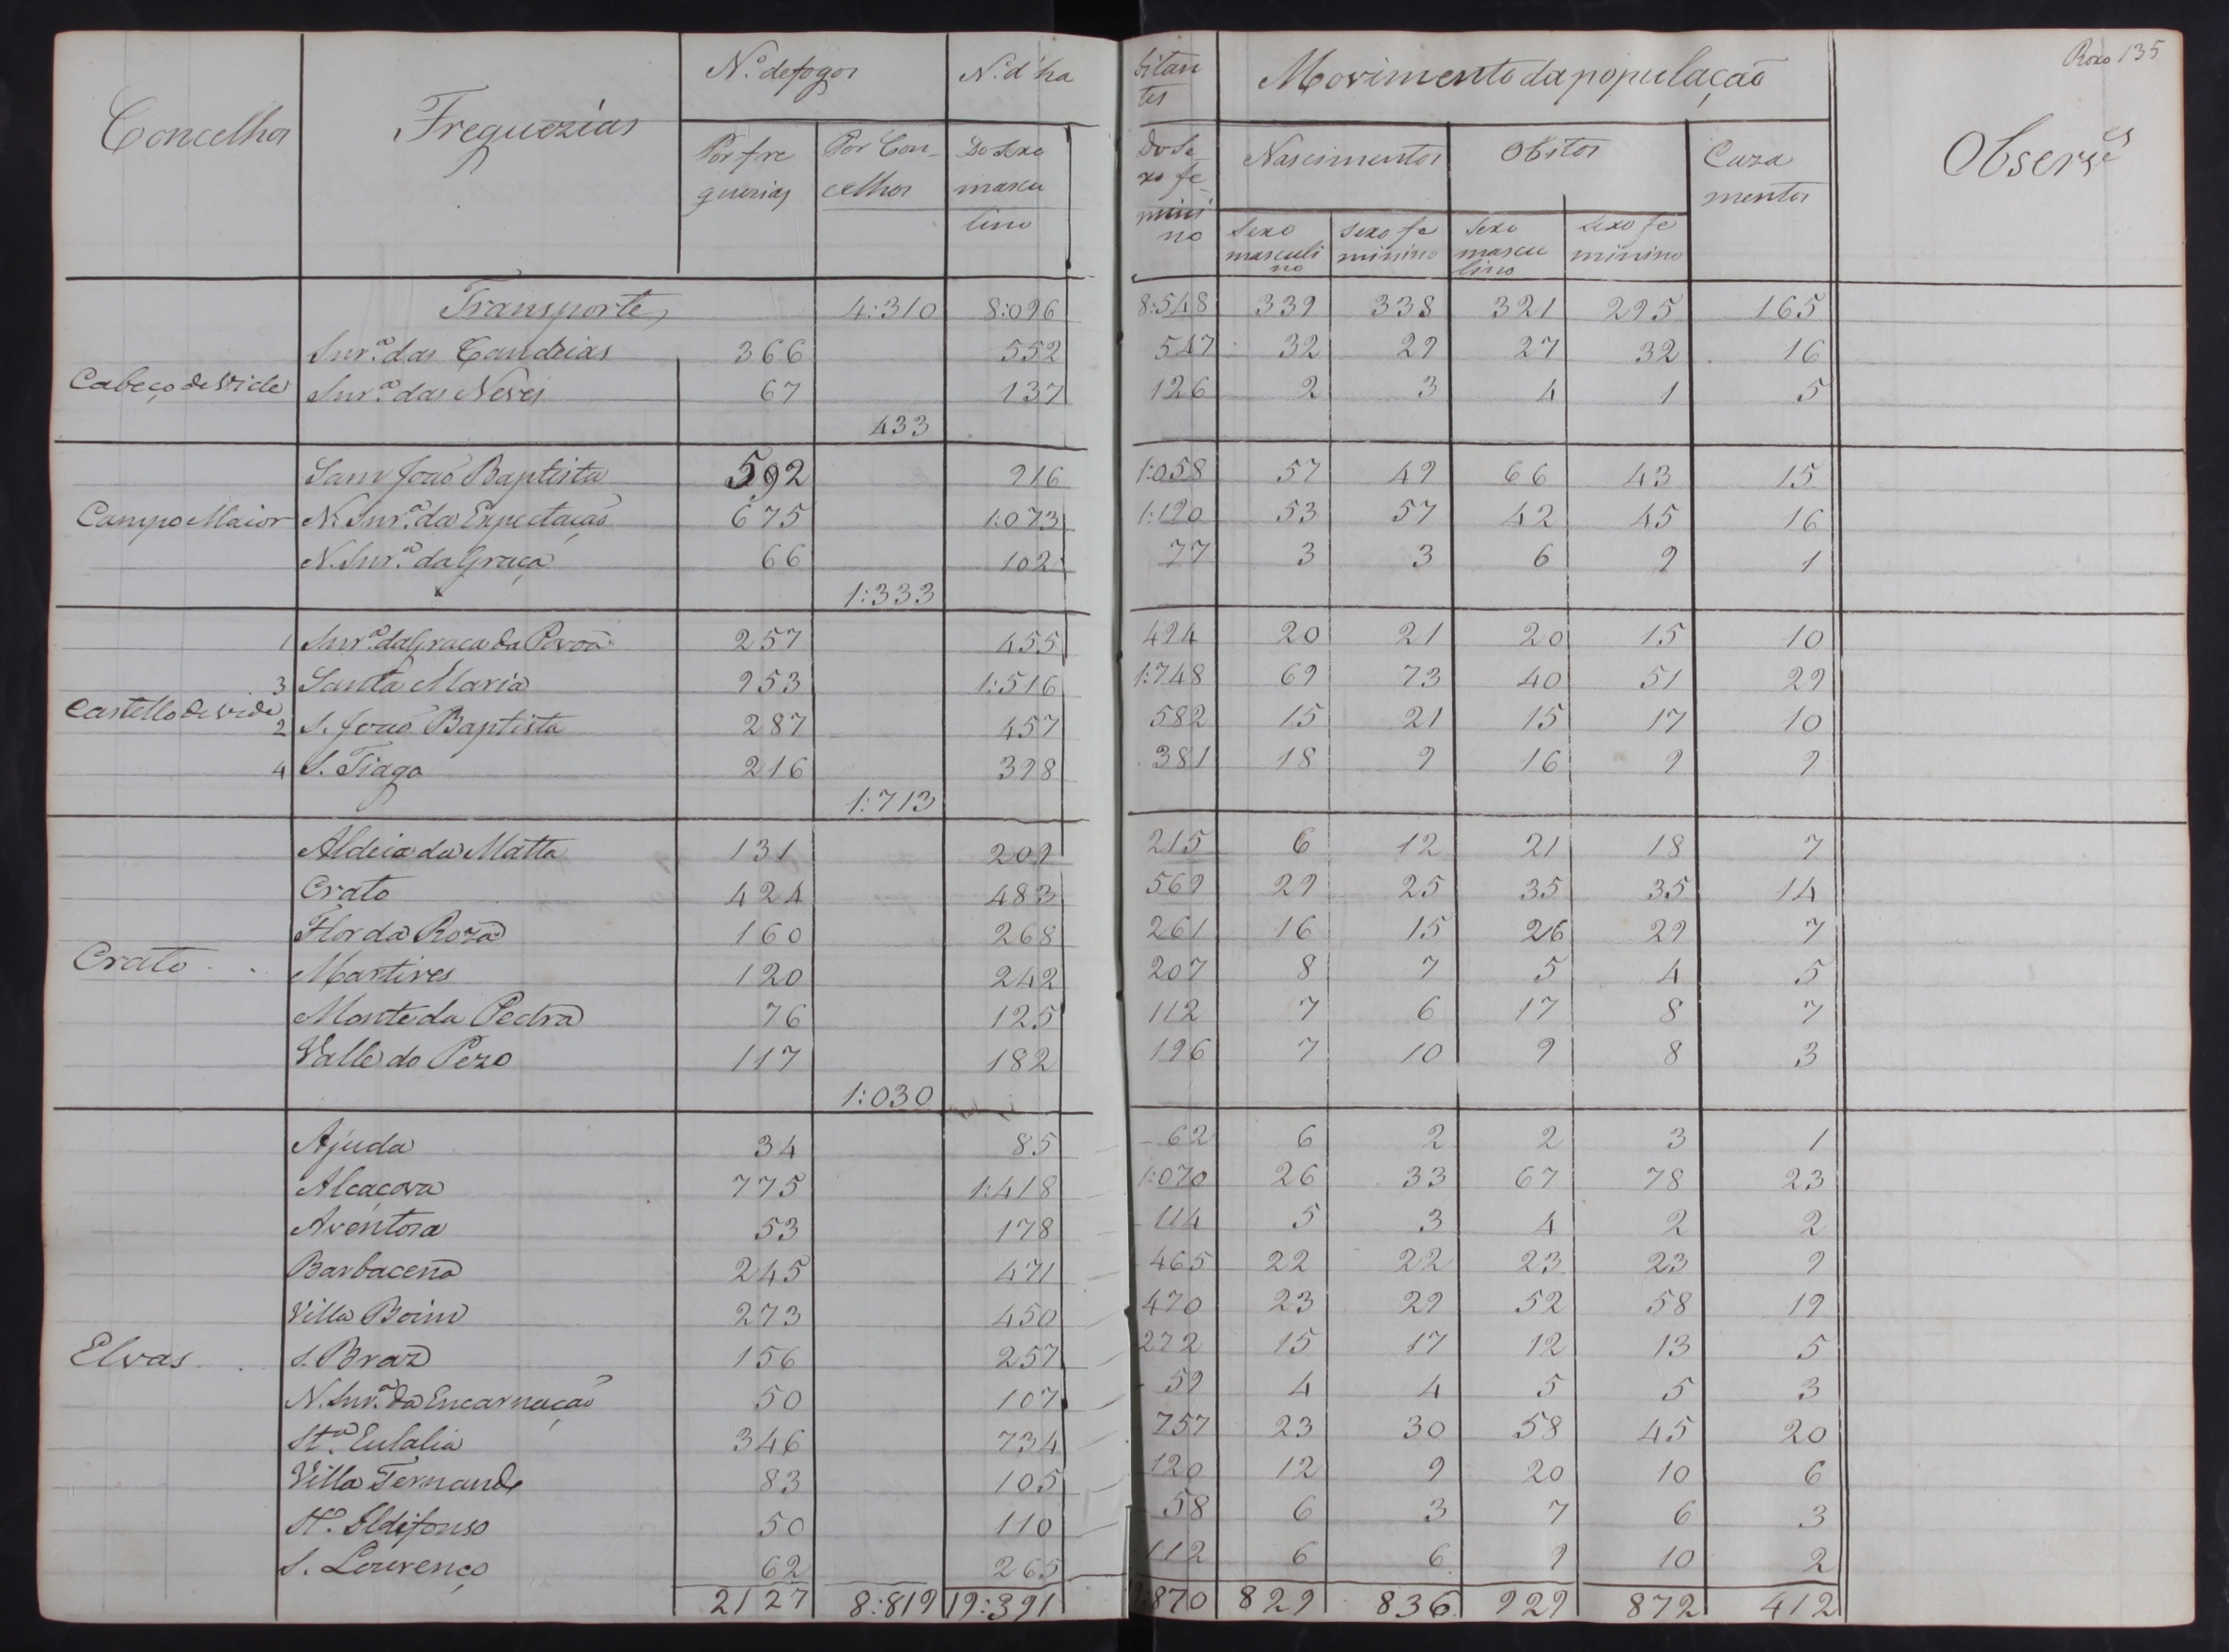 Roxo 135
Concelhos Freguezias N.º de fogos N.º d'ha bitan tes Movimento da população Observ.es
Por fre guezias Por Con- celhos Do sexo mascu lino Do Se- xo fe mini no Nascimentos Obitos Caza mentos
Sexo masculi no Sexo fe minino Sexo mascu lino Sexo fe minino
Transporte 4:310 8:096 8:548 339 338 321 295 165
Snr.ª das Candeias 366 552 547 32 29 27 32 16
Cabeço de Vide Snr.ª das Neves 67 137 126 2 3 4 1 5
433
Sam João Baptista 592 916 1:058 57 49 66 43 15
Campo Maior N. Snr.ª da Expectação 675 1:073 1:190 53 57 42 45 16
N. Snr.ª da Graça 66 102 77 3 3 6 9 1
1:333
1 Snr.ª da Graça da Povoa 257 455 494 20 21 20 15 10
3 Santa Maria 953 1:516 1:748 69 73 40 51 29
Castello de Vide 2 S. João Baptista 287 457 582 15 21 15 17 10
4 S. Tiago 216 398 381 18 9 16 9 9
1:713
Aldeia da Matta 131 209 215 6 12 21 18 7
Crato 424 483 569 29 25 35 35 14
Flor da Roza 160 268 261 16 15 26 29 7
Crato Martires 120 242 207 8 7 5 4 5
Monte da Pedra 76 125 112 7 6 17 8 7
Valle do Pezo 117 182 196 7 10 9 8 3
1:030
Ajuda 34 85 62 6 2 2 3 1
Alcaçova 775 1:418 1:070 26 33 67 78 23
Aventosa 53 178 114 5 3 4 2 2
Barbacena 245 471 465 22 22 23 23 9
Villa Boim 273 450 470 23 29 52 58 19
Elvas S. Braz 156 257 272 15 17 12 13 5
N. Snr.ª da Encarnação 50 107 59 4 4 5 5 3
St.ª Eulalia 346 734 757 23 30 58 45 20
Villa Fernando 83 105 120 12 9 20 10 6
St.º Ildifonso 50 110 58 6 3 7 6 3
S. Lourenço 62 265 112 6 6 9 10 2
2127 8:819 19:391 :870 829 836 929 872 412